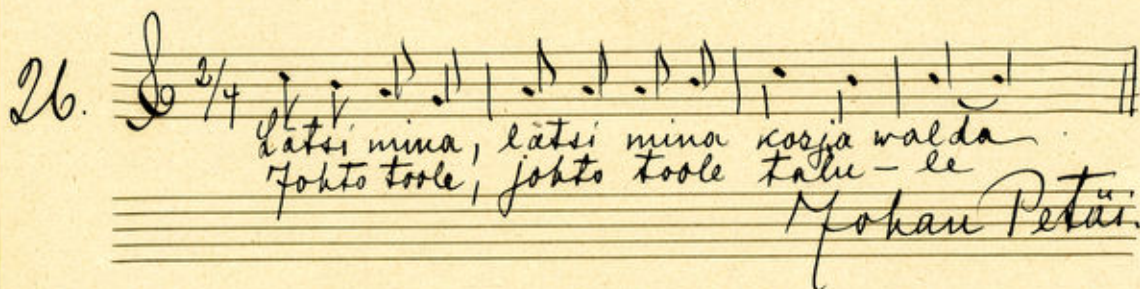 26.
2/4
Lätsi mina, lätsi mina kosja walda
Johto toole, johto toole talu-le
Johan Petäi.